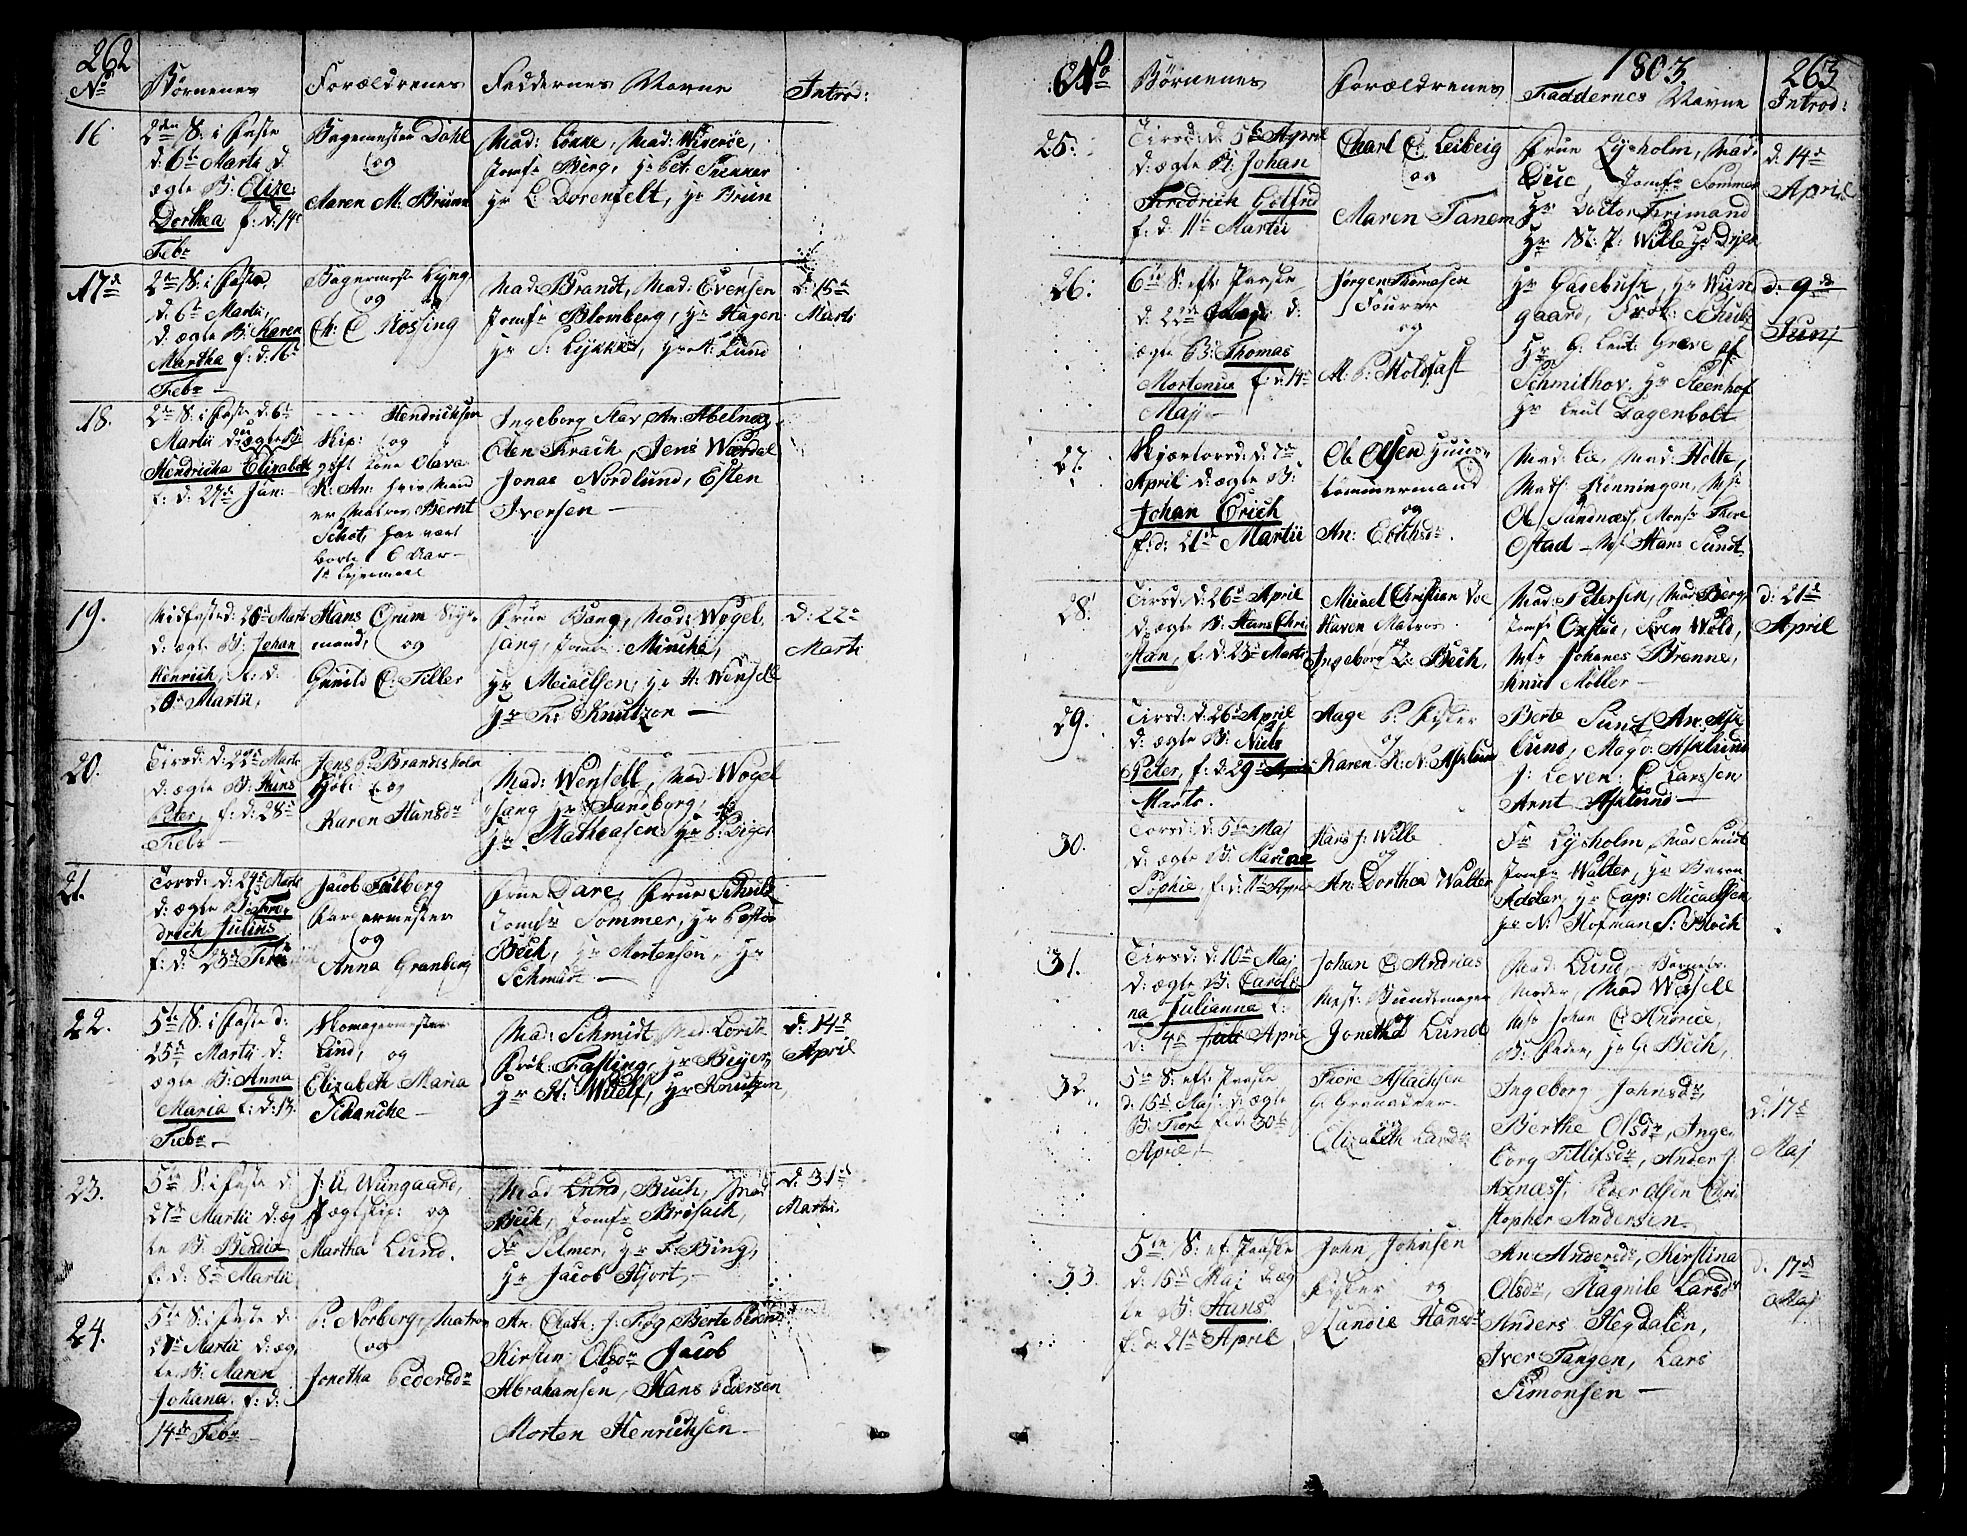 262
No Børnenes Forældrenes Faddernes Navne Introd:
16 2den S: i Faste
d: 6te Martii d:
ægte B: Elize
Dorthea f: d: 14de
Febr
Bagemester Dahl
og
Maren M: Bruun
Mad: Lønke, Mad: Widerøe,
Jomfr Berg, Hr Pet:
Hr C Dorenfelt, Hr Bruun
17de 2den S: i Faste
d: 6te Martii,
d: ægte B: Karen
Martha f: d: 16de
Febr
Bagermester Lyng
og
Ch: C Røssing
Mad Brandt, Mad: Evensen
Jomfr Blomberg, Hr Hagen
Hr S: Lykke, Hr A: Lund
d: 15de
Marti
18. 2den S: i Faste d: 6te
Martii d: uægte B:
Hendricha Elizabeth
f: d: 27de Jan:
Hendricksen
Skip: og
gift Kone Olava
K: An: hvis Mand
er Matros Bernt
Schot, har vært
borte 6 Aar
1te Leiermaal
Ingeborg Rav, An: Abelnæs
Olen Krach, Jens Wærdal
Jonas Nordlund, Esten
Iversen
19. Midfaste d: 20de Marti
d: ægte B: Johan
Henrich, f: d:
Martii,
Hans Orum
mand, og
Gunild C: Tiller
Frue Bang, Mad: Wogel
sang, Jomfr: Minche,
Hr Meiaelsen, Hr H: Wensell
Hr Fr: Knutzon
d: 22de
Marti
20. Tirsd: d: 22de Marti
d: ægte B: Hans
Peter, f: d: 28de
Febr
Jens P: Brandtsholm
og
Karen Hansdr
Mad: Wensell, Mad: Wogel
sang Hr: Sandborg,
Hr. Mathiasen Hr P: Biger
21. Torsd: d: 24de Marti
d: ægte B: Frie
drich Julius
f: d: 23de Febr
Jacob Falberg
Farvermester
og
Anna Granberg
Frue Dare, Frue Schult
Jomfr Sommer, Hr Pastor
Bech, Hr Mortensen, Hr
Schmidt
22. 5te S: i Faste d:
25de Martii d:
ægte B: Anna
Maria f: d: 13.
Febr
Skomagermester
Lind, og
Elizabeth Maria
Schanche
Mad: Schmidt, Mad: Lorck
Frøk: Fasting, Hr Beyer,
Hr H: Wulf, Hr Knutzon
d: 14de
April
23. 5te S: i Faste d:
27de Martii d: æg
te B: Bendix
f: d: 8de Martii
J: U: Wungaard,
Skip: og
Martha Lund.
Mad Lund, Buch, Mad
Bech, Jomfr Brosach,
Fr Selmer, Hr F: Bing,
Hr Jacob Hjort,
d: 31te
Marti
24. 5te S: i Faste d:
27de Martii d: æg
te B: Maren
Johana f: d:
14de Febr
P: Norberg, Matros
og
Jonetha Pedersdr
An: Cath: J: Fløg, Berte Pedersdr
Kirsten Olsdr Jacob
Abrahamsen, Hans Pedersen
Morten Henrichsen
1803. 263
No Børnenes Forældrenes Faddernes Navne Introd:
25: Tirsd: d: 5te April
d: ægte B: Johan
Fredrich Gotfrid
f: d: 11te Martii
Charl C: Leibeig
og
Maren Tanem
Frue Lysholm, Mad:
Due, Jomfr Sommer
Hr Doctor Ferimand
Hr P: Wille
d: 14de
April
26: 6te S: eft: Paaske
d: 22de Maji d:
ægte B: Thomas
Mortenus f: d: 14de
Maji
Jørgen Thomæsen
Fourer
og
M: P: Holdfast
Hr Gasebush, Hr Wun
gaard, Frøk: Schult
Hr P: Leut: Greve af
Schmithov, Hr Steenhof
Hr Leut Dagenbolt
d: 9de
Junj
27. Skjærtorsd: d: 7de
April d: ægte B:
Johan Erich
f: d: 21de Martii
Ole Olsen Huus
tømmermand
og
An: Erichsdr
Mad: Lie, Mad: Holte,
Mads: Rønningen, Mr
Ole Sundnæs, Monsr Thore
Ostad, Mr Hans Sundt.
28: Tirsd: d: 26de April
d: ægte B: Hans Chri
stian, f: d: 23de Marti
Micael Christian Doe
Haven Matros
og
Ingeborg L: Bech,
Mad Petersen, Mad Berg,
Jomfr Oxstad, Sven Wold,
Mr Johanes Brenne,
Knut Møller
d: 21de
April
29. Tirsd: d: 26de April
d: ægte B: Niels
Peter, f: d: 29de
Marti.
Aage P: Fisker
og
Karen K: N: Aslund
Berte Sund, An: As
lund, Mago: Aslund
J: Leven, C: Larssen
Arnt Aslund
30. Torsd: d: 5te Maj
d: ægte B: Mariane
Sophie, f: d: 1te April
Hans J: Wille
og
An: Dorthea Walter
Fr Lysholm, Mad Smidt
Jomfr Walter, Hr Baron
Addler, Hr Cap: Micaelsen
Hr N: Hofman S: Bloch
31. Tirsd: d: 10de Maj
d: ægte B: Caroli
na Julianna f:
d: 4de April
Johan C: Andrias
Mest: Bundtmager
og
Jonetha Lund
Mad: Lund, Barnets
Moder, Mad Wessell
Mr Johan C Andrice,
B: Peder, Hr C: Bech,
32. 5te S: eft: Paaske
d: 15de Maj: d: ægte
B: Tore f: d: 30te
April,
Tore Aslachsen
G: Grenadeer
Elizabeth Larsdr
Ingeborg Johnsdr,
Berthe Olsdr, Inge
borg Tillifsdr, Ander J:
Axnæss, Peter Olsen Chri
stopher Andersen.
d: 17de
Maj
33. 5te S: ef: Paaske
d: 15de Maj d: æg
te B: Hans
f: d: 21de April
John Johnsen
Fisker og
Randie Hansdr
An: Andersdr, Kirstina
Olsdr, Ragnile Larsdr
Anders Hegdalen,
Iver Tangen, Lars
Simonsen
d. 17de
Maj